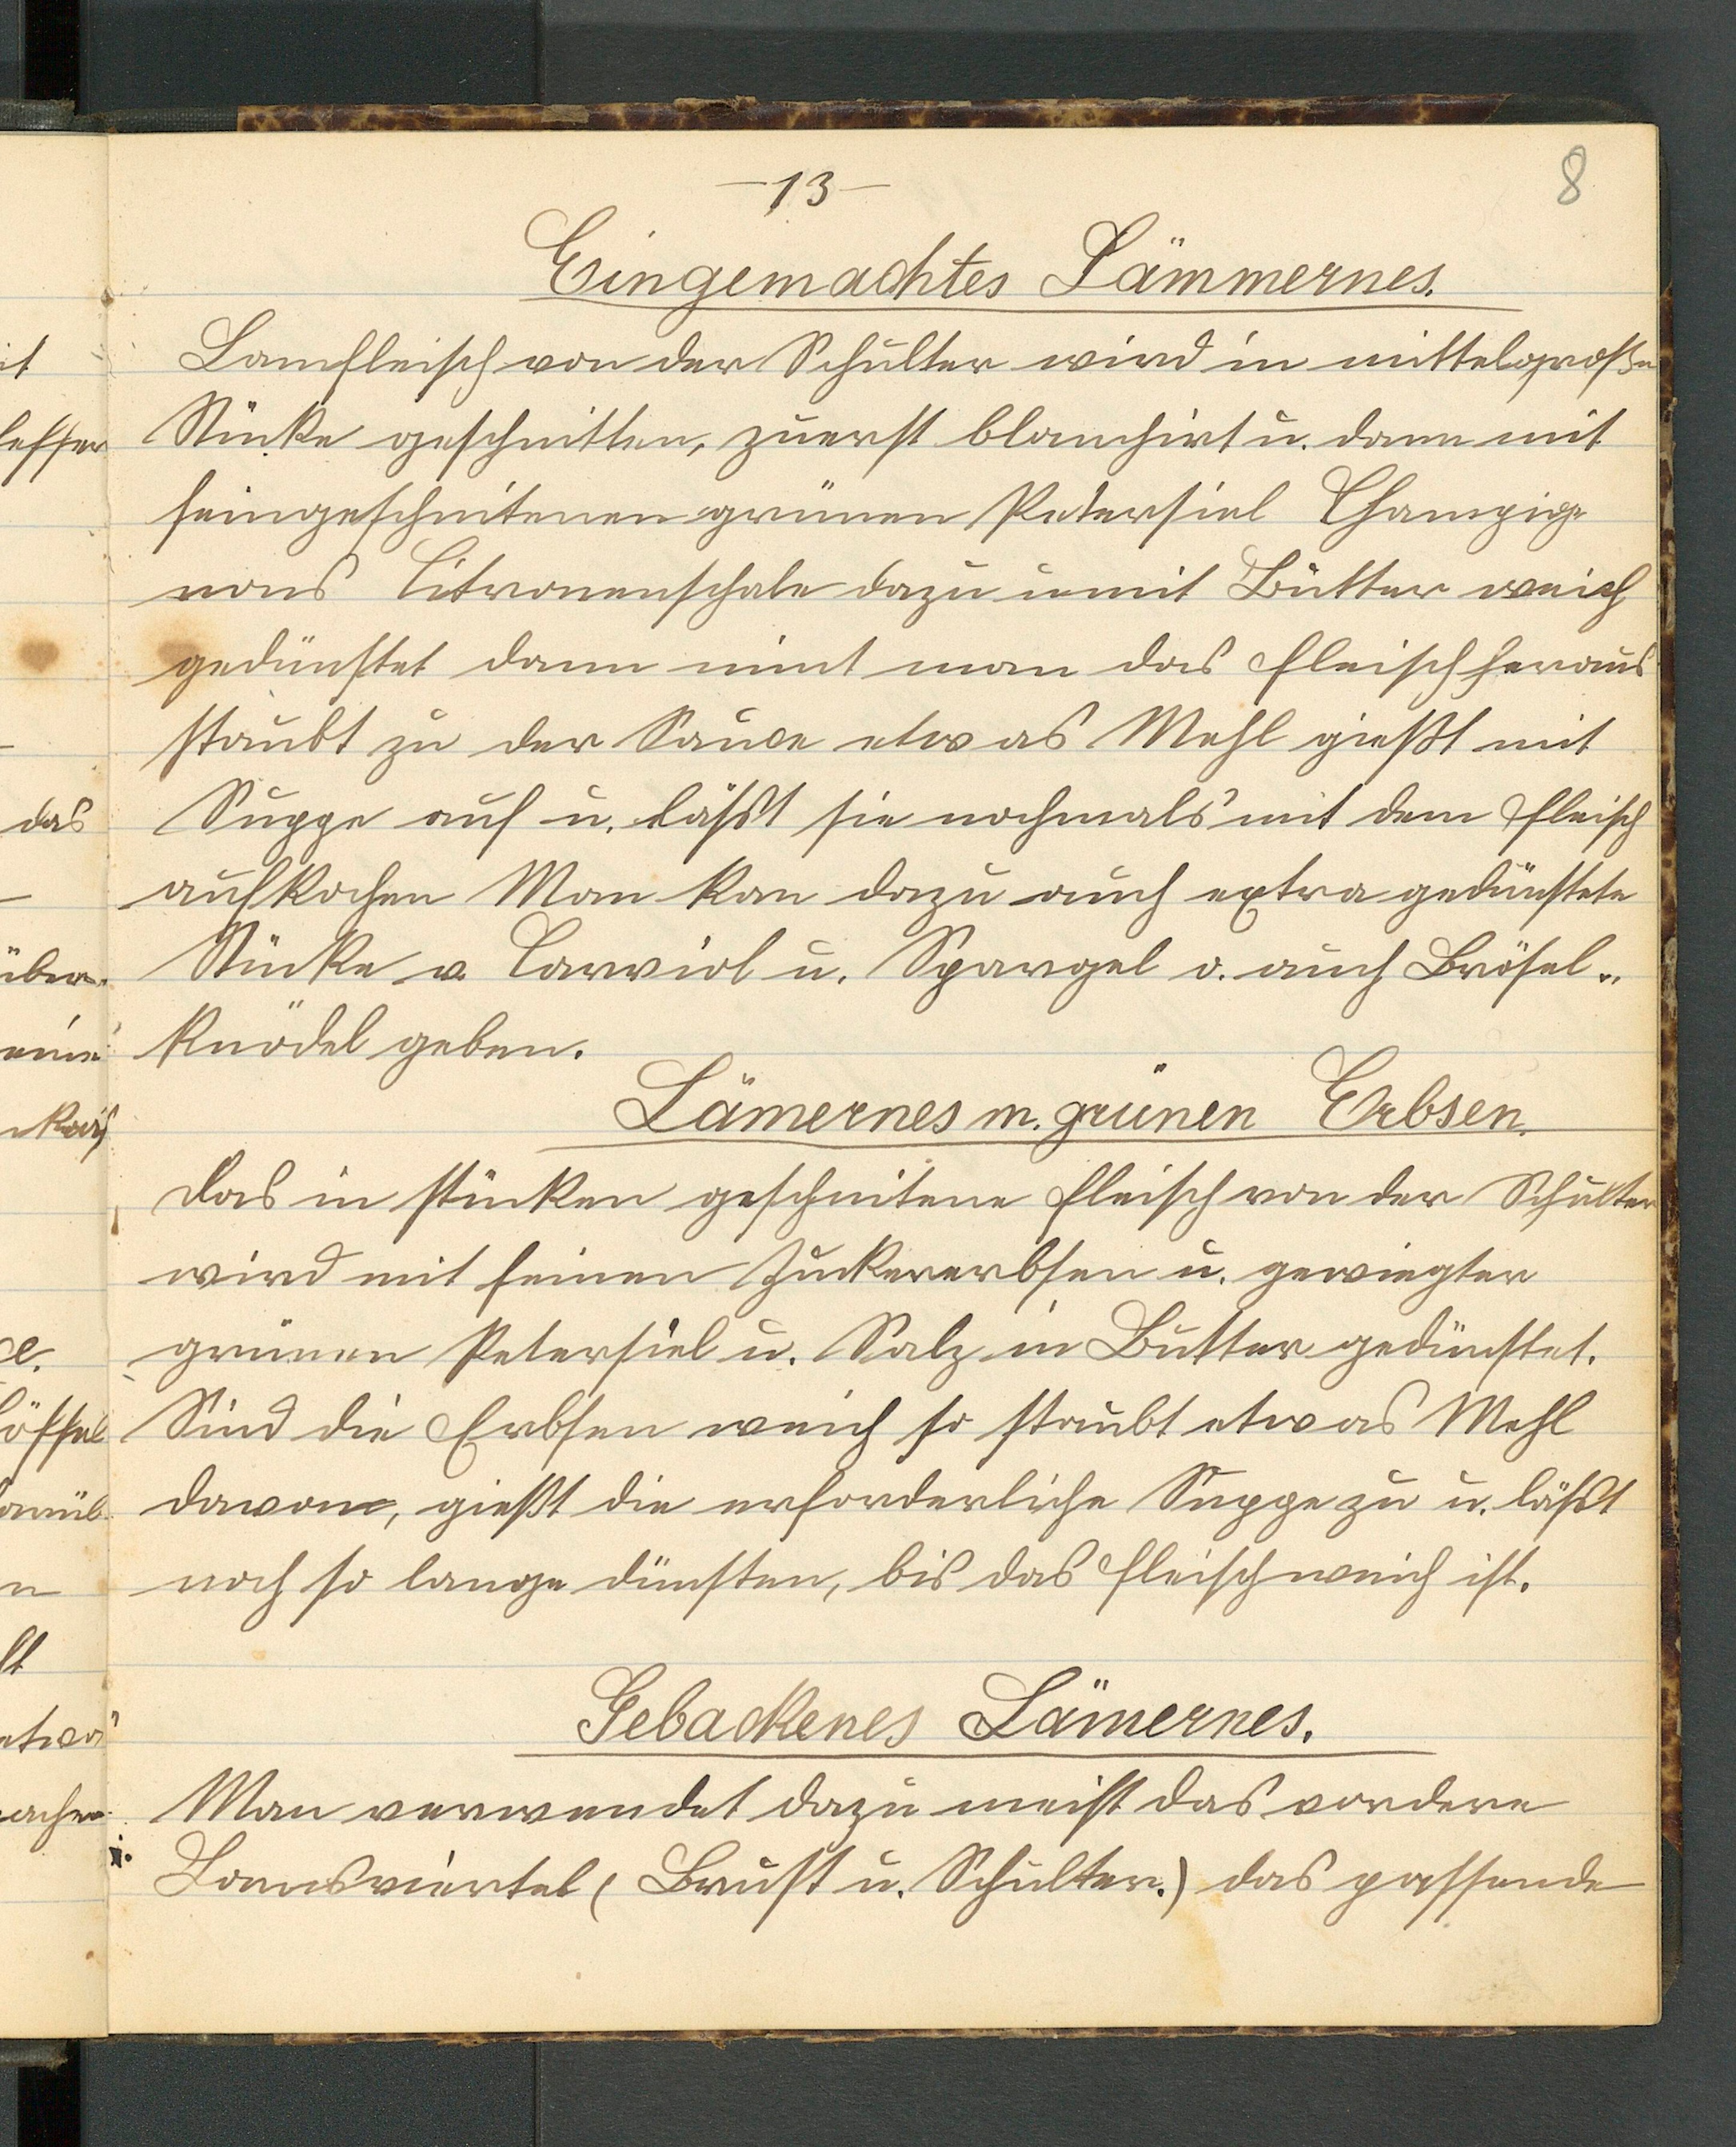 -13-
8
Eingemachtes Lämmernes.
Lamfleisch von der Schulter wird in mittelgroße
Stücke geschnitten, zuerst blanchirt u. dann mit
feingeschnitenen grünen Petersiel Champig-
nons Citronenschale dazu u mit Butter weich
gedünstet dann nimt man das Fleisch heraus
staubt zu der Sauce etwas Mehl gießt mit
Suppe auf u. läßt sie nochmals mit dem Fleisch
aufkochen Man kan dazu auch extra gedünstete
Stücke v. Carviol u. Spargel o. auch Brösel-
knödel geben.
Lämernes m. grünen Erbsen.
Das in stücken geschnitene Fleisch von der Schulter
wird mit feinen Zuckererbsen u. gewiegter
grünen Petersiel u. Salz in Butter gedünstet.
Sind die Erbsen weich so staubt etwas Mehl
davon, gießt die erforderliche Suppe zu u. läßt
noch so lange dünsten, bis das Fleisch weich ist.
Gebackenes Lämernes.
Man verwendet dazu meist das vordere
Lamsviertel (Brust u. Schulter.) das passende